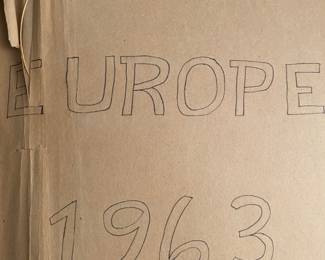 EUROPE
1963